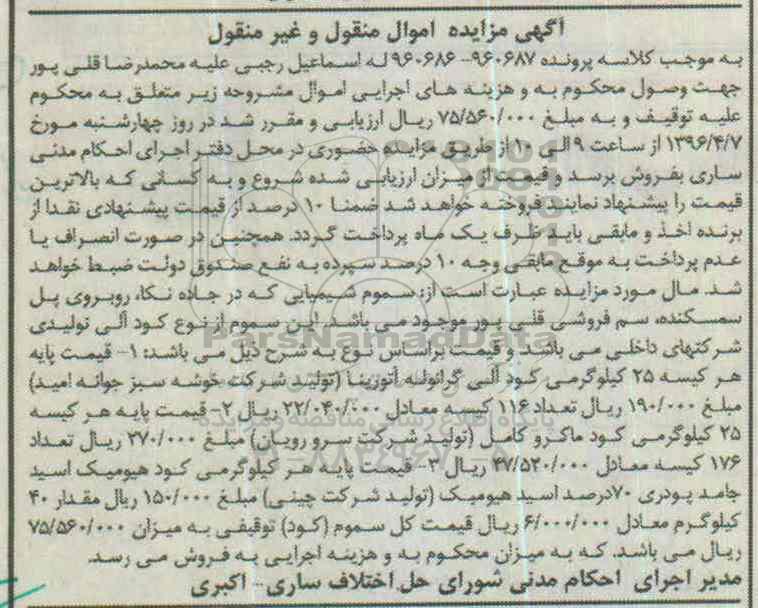 آگهی مزایده اموال منقول و غیر منقول
به موجب کلاسه پرونده ۹۶۰۶۸۷- ۹۶۰۶۸۶ له اسماعیل رجبی علیه محمدرضا قلی پور
جهت وصول محکوم به و هزینه های اجرایی اموال مشروحه زیر متعلق به محکوم
علیه توقیف و به مبلغ ۷۵/۵۶۰/۰۰۰ ریال ارزیابی و مقرر شد در روز چهارشنبه مورخ
۱۳۹۶/۴/۷ از ساعت ۹ الی ۱۰ از طریق مزایده حضوری در محل دفتر اجرای احکام مدنی
ساری بفروش برسد و قیمت از میزان ارزیابی شده شروع و به کسانی که بالاترین
قیمت را پیشنهاد نمایند فروخته خواهد شد ضمنا ۱۰ درصد از قیمت پیشنهادی نقدا از
برنده اخذ و مابقی باید ظرف یک ماه پرداخت گردد. همچنین در صورت انصراف یا
عدم پرداخت به موقع مابقی وجه ۱۰ درصد سپرده به نفع صندوق دولت ضبط خواهد
شد. مال مورد مزایده عبارت است از: سموم شیمیایی که در جاده نکا، روبروی پل
سمسکنده، سم فروشی قلی پور موجود می باشد. این سموم از نوع کود آلی تولیدی
شرکتهای داخلی می باشد و قیمت براساس نوع به شرح ذیل می باشد: ۱- قیمت پایه
هر کیسه ۲۵ کیلوگرمی کود آلبی گرانوله آتوزینا (تولید شرکت خوشه سبز جوانه امید)
مبلغ ۱۹۰/۰۰۰ ریال تعداد ۱۱۶ کیسه معادل ۲۲/۰۴۰/۰۰۰ ریال ۲- قیمت پایه هر کیسه
۲۵ کیلوگرمی کود ماکرو کامل (تولید شرکت سرو رویان) مبلغ ۲۷۰/۰۰۰ ریال تعداد
۱۷۶ کیسه معادل ۴۷/۵۲۰/۰۰۰ ریال ۳- قیمت پایه هر کیلوگرمی کود هیومیک اسید
جامد پودری ۷۰درصد اسید هیومیک (تولید شرکت چینی) مبلغ ۱۵۰/۰۰۰ ریال مقدار ۴۰
کیلوگرم معادل ۶/۰۰۰/۰۰۰ ریال قیمت کل سموم (کود) توقیفی به میزان ۷۵/۵۶۰/۰۰۰
ریال می باشد. که به میزان محکوم به و هزینه اجرایی به فروش می رسد.
مدیر اجرای احکام مدنی شورای حل اختلاف ساری- اکبری
ParsNamadData
پایگاه اطلاع رسانی مناقصه و مزایده